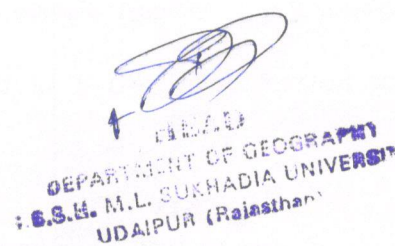 HEAD
DEPARTMENT OF GEOGRAPHY
M.L. SUKHADIA UNIVERSIT
UDAIPUR (Rajasthan)